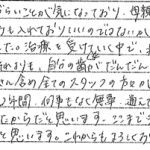 らいことが気になっており、母親
も入れておりいいのではないか
た。治療を受けていく中で、
よりも、自分の歯がだんだん
さん含め全てのスタッフの方々の
2年間、何事もなく無事、通って
たからだと思います。ここまで
と思います。これからもよろしくお